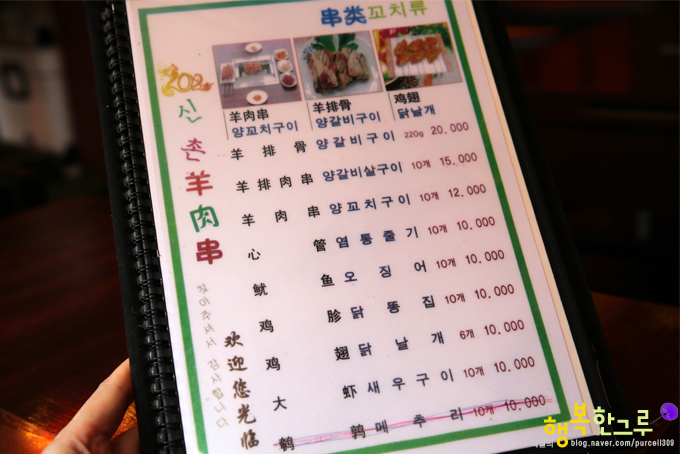 串类 꼬치류
羊肉串
양꼬치구이
羊排骨
양갈비구이
鸡翅
닭날개
신촌羊肉串
欢迎您光临
羊排骨 양갈비구이 220g 20.000
羊排肉串 양갈비살구이 10개 15.000
羊肉串 양꼬치구이 10개 12.000
心管 염통줄기 10개 10.000
鱿鱼 오징어 10개 10.000
鸡胗 닭똥집 10개 10.000
鸡翅 닭날개 6개 10.000
大虾 새우구이 10개 10.000
鹌鹑 메추리 10개 10.000
행복한그루
blog.naver.com/purcell309